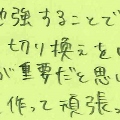 勉強することで
切り換えを
が重要だと思い
作って頑張っ